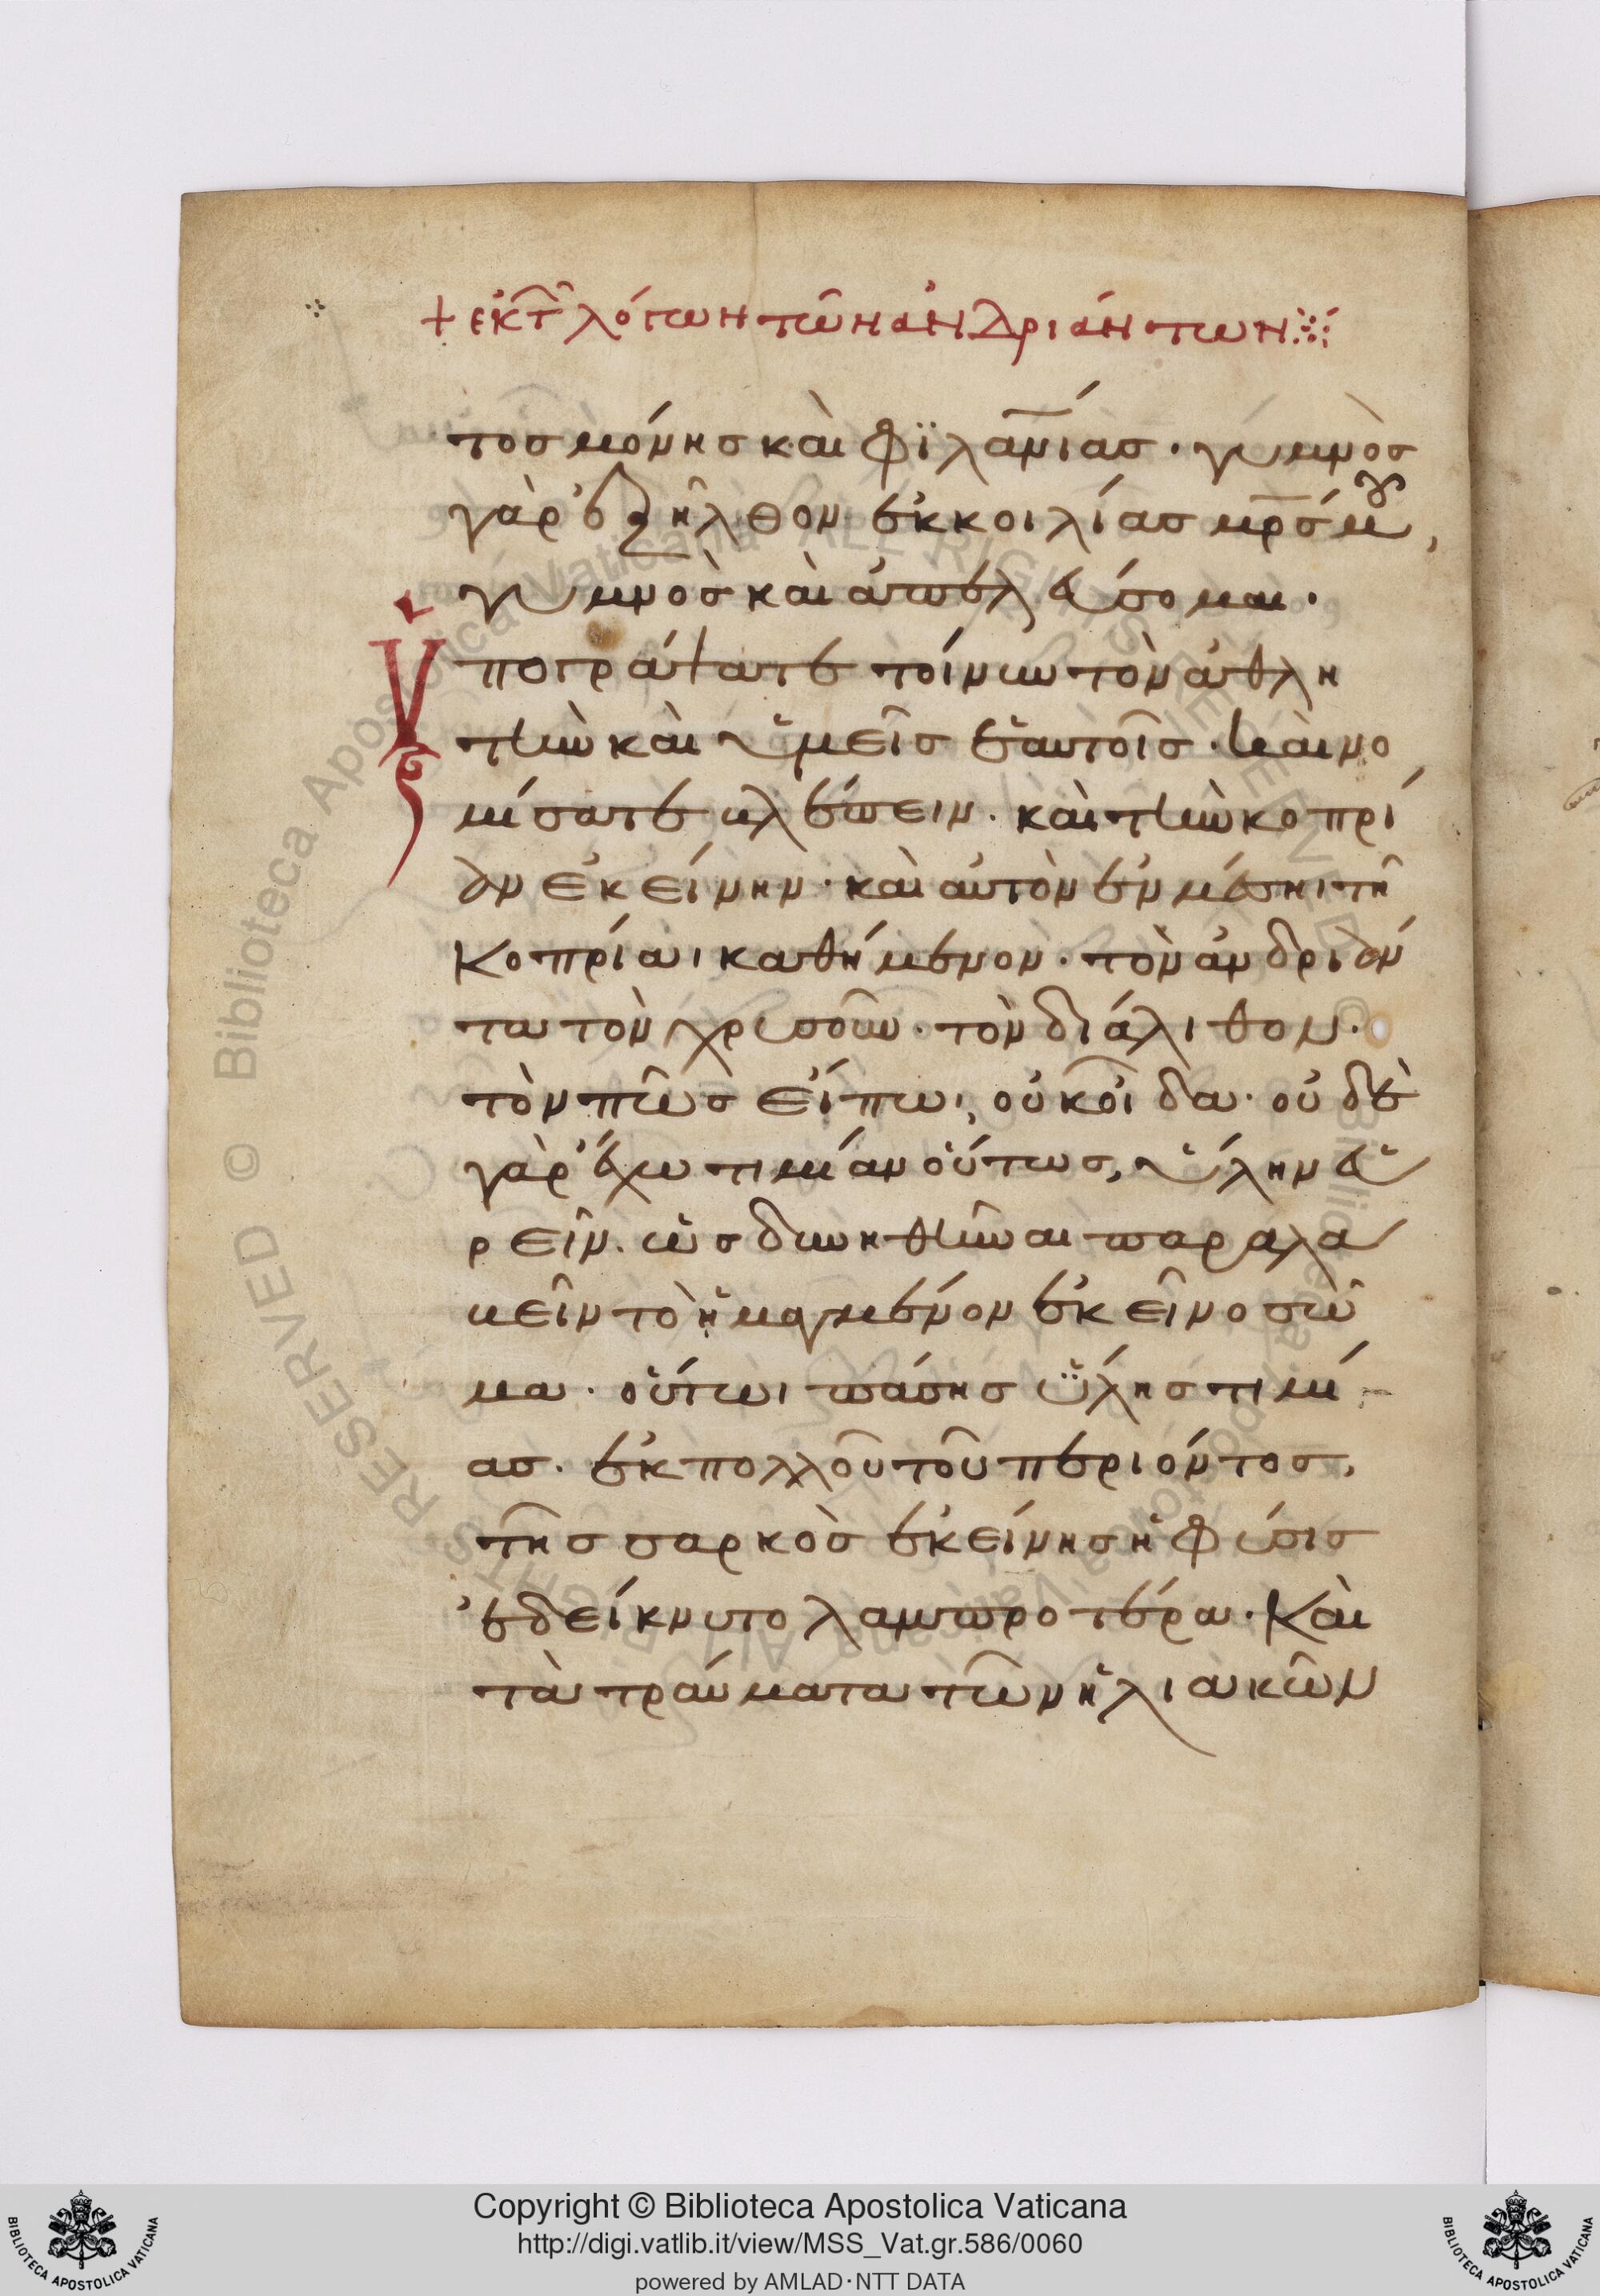 + ἐκ τ͂ λόγων τῶν ἀνδριάντων
τοσ μόνησ καὶ φϊλαν̅ίασ· γυμνὸσ
γὰρ ἐξῆλθον ἐκ κοιλίασ μρ̅σ μου,
γυμνὸσ καὶ ἀπελεύσομαι·
Ὑπογράψατε τοίνυν τὸν ἀθλη
τὴν καὶ ὑμεῖσ ἑαυτοῖσ· καὶ νο
μίσατε βλέπειν· καὶ τὴν κοπρί
αν ἐκείνην· καὶ αὐτὸν ἐν μέσηι τῆ
κοπρίαι καθήμενον· τὸν ἀνδριάν
τα τὸν χρυσοῦν· τὸν διάλιθον·
τὸν πῶσ εἴπω, οὐκ οἶδα· οὐδὲ
γὰρ ἔχω τιμίαν οὕτωσ, ὕλην εὑ
ρεῖν· ὡσ δυνηθῆναι παραλα
βεῖν τὸ ἡμαγμένον ἐκεῖνο σῶ
μα· οὕτωι πάσησ ὕλησ τιμί
ασ· ἐκ πολλοῦ τοῦ περιόντοσ,
τῆσ σαρκὸσ ἐκείνησ ἡ φύσισ
ἐδείκνυτο λαμπροτέρα· Καὶ
τὰ τραύματα τῶν ἡλιακῶν
Copyright © Biblioteca Apostolica Vaticana
http://digi.vatlib.it/view/MSS_Vat.gr.586/0060
powered by AMLAD·NTT DATA
BIBLIOTECA APOSTOLICA VATICANA
BIBLIOTECA APOSTOLICA VATICANA